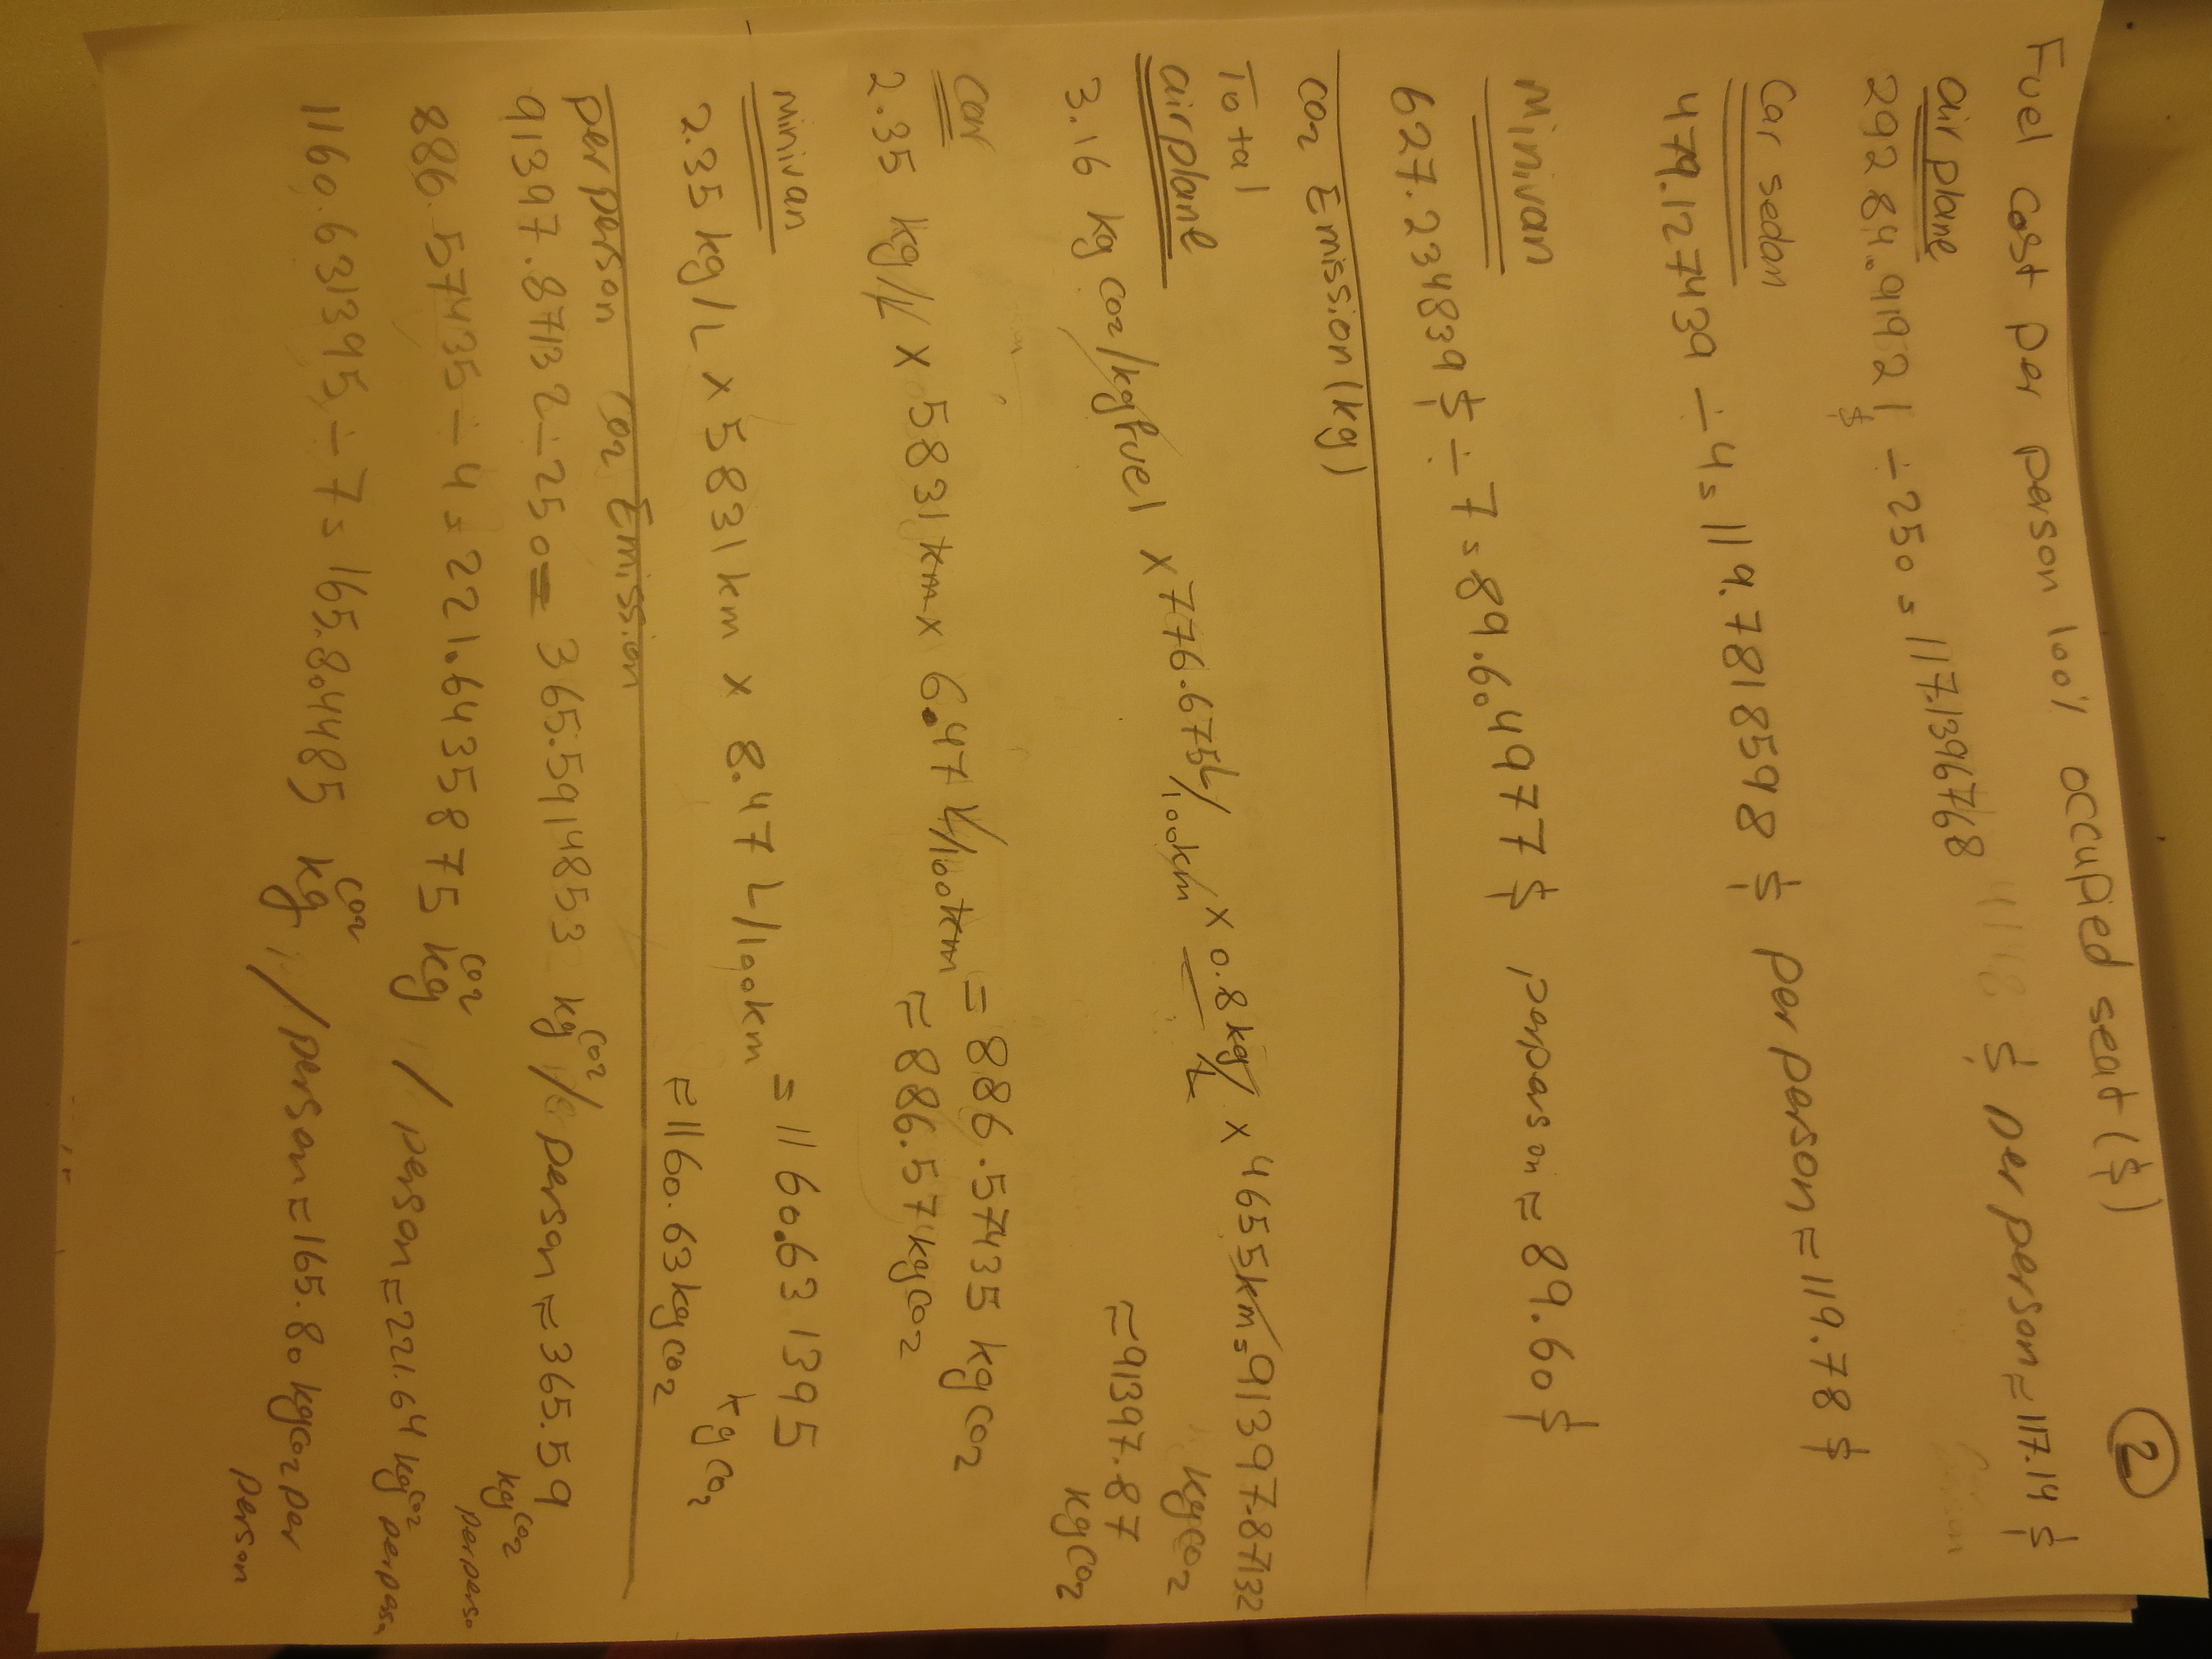 2
Fuel cost per person 100% occupied seat ($)
airplane
29284.91921 $ ÷ 250 = 117.1396768 $ per person ≈ 117.14 $
Car sedan
479.127439 ÷ 4 = 119.7818598 $ per person ≈ 119.78 $
Minivan
627.234839 $ ÷ 7 = 89.604977 $ person ≈ 89.60 $
CO2 Emission (kg)
Total
airplane
3.16 kg CO2/kg fuel × 776.675 L/100km × 0.8 kg/L × 4655 km = 91397.87132 kg CO2
≈ 91397.87 kg CO2
Car
2.35 kg/L × 5831 km × 6.47 L/100km = 886.57435 kg CO2
≈ 886.57 kg CO2
Minivan
2.35 kg/L × 5831 km × 8.47 L/100km = 1160.631395 kg CO2
≈ 1160.63 kg CO2
per person CO2 Emission
91397.87132 ÷ 250 = 365.5914853 kg CO2 / person ≈ 365.59 kg CO2 per perso
886.57435 ÷ 4 = 221.6435875 kg CO2 / person ≈ 221.64 kg CO2 per person
1160.631395 ÷ 7 = 165.804485 kg CO2 / person ≈ 165.80 kg CO2 per person